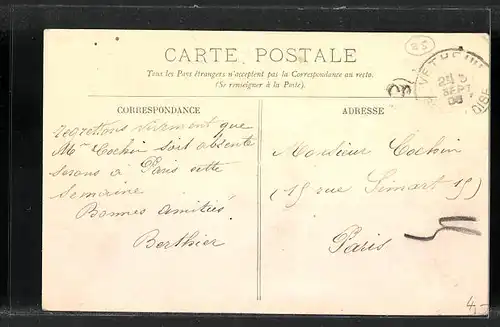 CARTE POSTALE
Tous les Pays étrangers n'acceptent pas la Correspondance au recto.
(Se renseigner à la Poste).
CORRESPONDANCE
regrettons vivement que
Mme Cochin soit absente
serons à Paris cette
semaine
Bonnes amitiés
Berthier
ADRESSE
Monsieur Cochin
(15 rue Simart 15)
Paris
VETHEUIL
25 SEPT 08
OISE
4,-